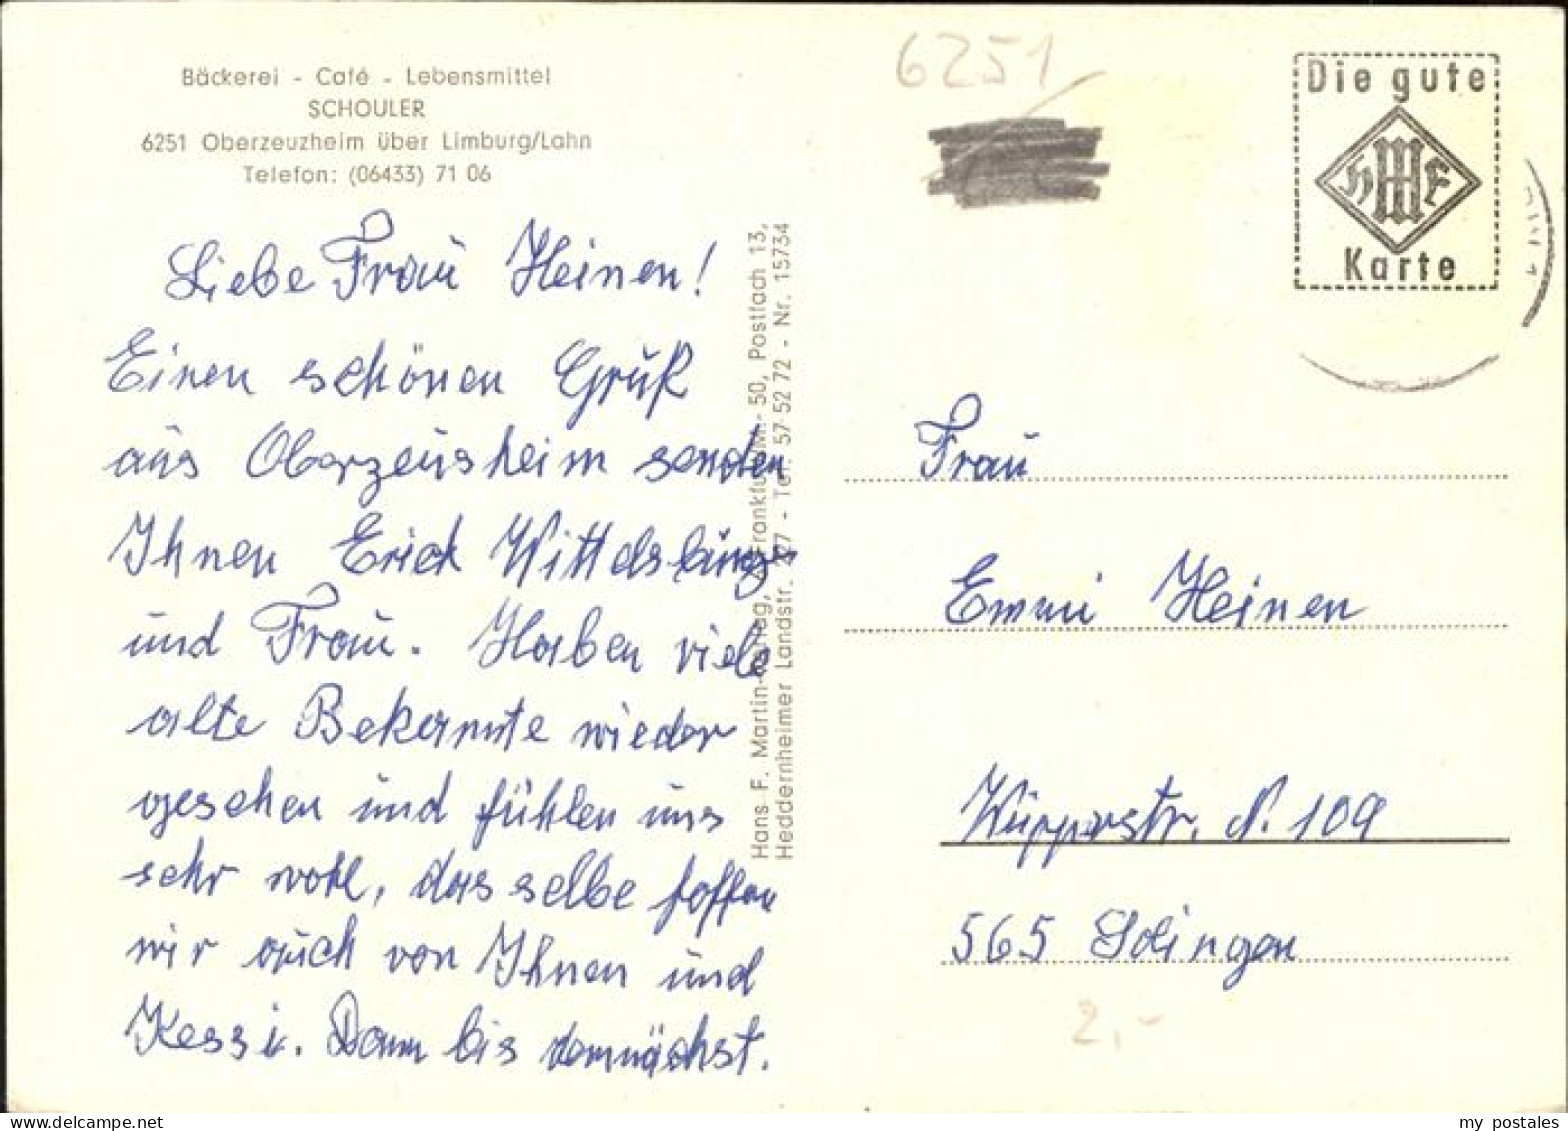 Bäckerei - Café - Lebensmittel
SCHOULER
6251 Oberzeuzheim über Limburg/Lahn
Telefon: (06433) 71 06
Liebe Frau Heinen!
Einen schönen Gruß
aus Oberzeusheim senden
Ihnen Erich
und Frau. Haben viele
alte Bekannte wieder
gesehen und fühlen uns
sehr wohl, dasselbe hoffen
wir auch von Ihnen und
Kessi. Dann bis demnächst.
Hans F. Martin-Verlag, Frankfurt/M.- 50, Postfach 13,
Heddernheimer Landstr. Tel. 57 52 72 - Nr. 15734
6251
Die gute
HWFE
Karte
Frau
Emmi Heinen
Wupperstr. N. 109
565 Solingen
2,-
my postales